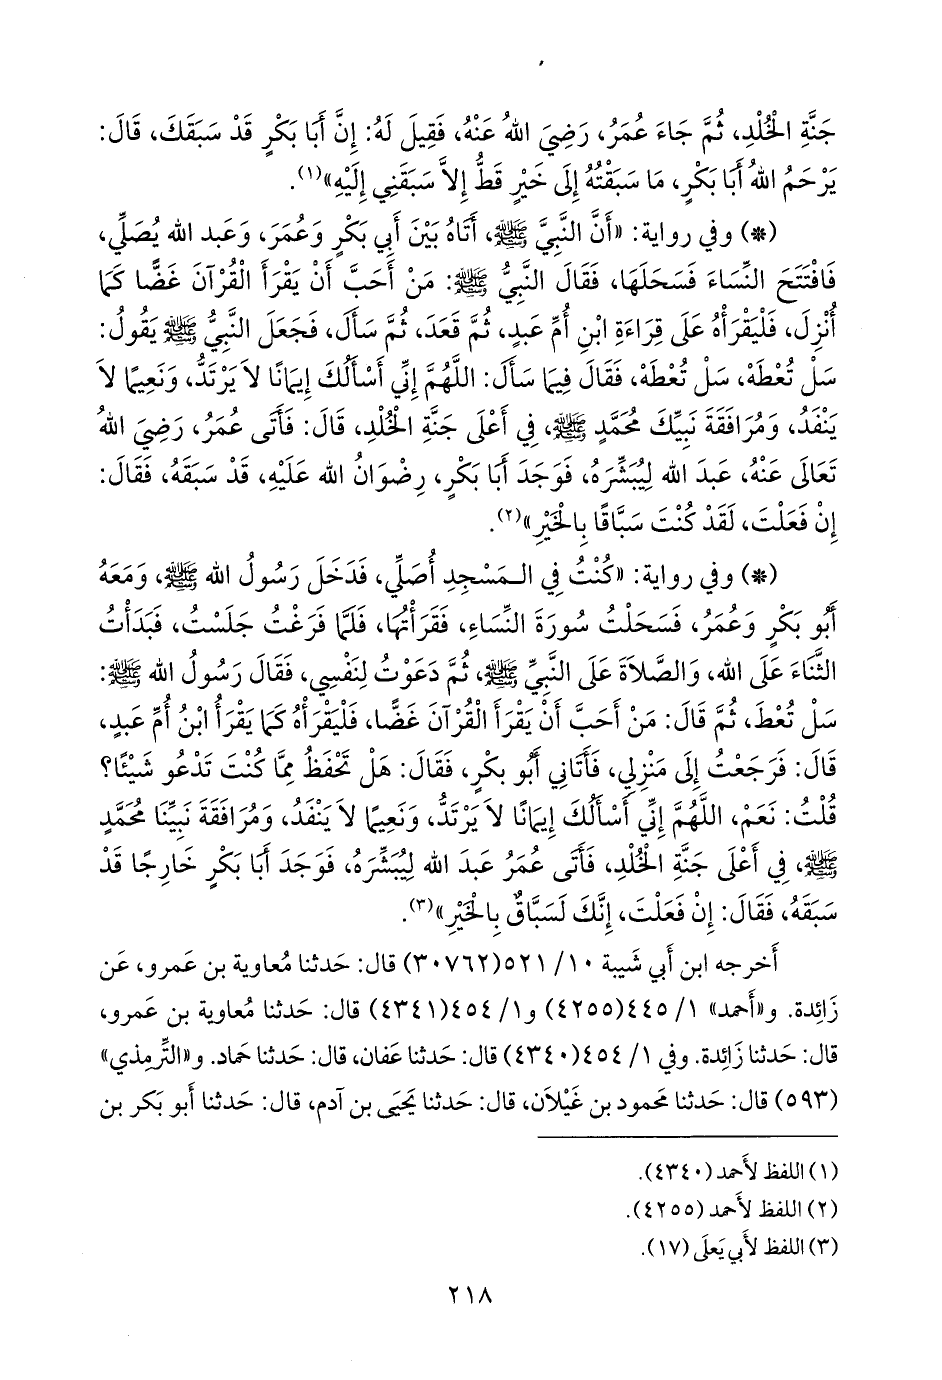 جَنَّةِ الْخُلْدِ، ثُمَّ جَاءَ عُمَرُ، رَضِيَ اللهُ عَنْهُ، فَقِيلَ لَهُ: إِنَّ أَبَا بَكْرٍ قَدْ سَبَقَكَ، قَالَ:
يَرْحَمُ اللهُ أَبَا بَكْرٍ، مَا سَبَقْتُهُ إِلَى خَيْرٍ قَطُّ إِلاَّ سَبَقَنِي إِلَيْهِ»(١).
(*) وفي رواية: «أَنَّ النَّبِيَّ ﷺ، أَتَاهُ بَيْنَ أَبِي بَكْرٍ وَعُمَرَ، وَعَبد الله يُصَلِّي،
فَافْتَتَحَ النِّسَاءَ فَسَحَلَهَا، فَقَالَ النَّبِيُّ ﷺ: مَنْ أَحَبَّ أَنْ يَقْرَأَ الْقُرْآنَ غَضًّا كَمَا
أُنْزِلَ، فَلْيَقْرَأْهُ عَلَى قِرَاءَةِ ابْنِ أُمِّ عَبدٍ، ثُمَّ قَعَدَ، ثُمَّ سَأَلَ، فَجَعَلَ النَّبِيُّ ﷺ يَقُولُ:
سَلْ تُعْطَهْ، سَلْ تُعْطَهْ، فَقَالَ فِيمَا سَأَلَ: اللَّهُمَّ إِنِّي أَسْأَلُكَ إِيمَانًا لاَ يَرْتَدُّ، وَنَعِيمًا لاَ
يَنْفَدُ، وَمُرَافَقَةَ نَبِيِّكَ مُحَمَّدٍ ﷺ، فِي أَعْلَى جَنَّةِ الْخُلْدِ، قَالَ: فَأَتَى عُمَرُ، رَضِيَ اللهُ
تَعَالَى عَنْهُ، عَبدَ الله لِيُبَشِّرَهُ، فَوَجَدَ أَبَا بَكْرٍ، رِضْوَانُ الله عَلَيْهِ، قَدْ سَبَقَهُ، فَقَالَ:
إِنْ فَعَلْتَ، لَقَدْ كُنْتَ سَبَّاقًا بِالْخَيْرِ»(٢).
(*) وفي رواية: «كُنْتُ فِي الـمَسْجِدِ أُصَلِّي، فَدَخَلَ رَسُولُ الله ﷺ، وَمَعَهُ
أَبُو بَكْرٍ وَعُمَرُ، فَسَحَلْتُ سُورَةَ النِّسَاءِ، فَقَرَأْتُهَا، فَلَمَّا فَرَغْتُ جَلَسْتُ، فَبَدَأْتُ
الثَّنَاءَ عَلَى الله، وَالصَّلاَةَ عَلَى النَّبِيِّ ﷺ، ثُمَّ دَعَوْتُ لِنَفْسِي، فَقَالَ رَسُولُ الله ﷺ:
سَلْ تُعْطَ، ثُمَّ قَالَ: مَنْ أَحَبَّ أَنْ يَقْرَأَ الْقُرْآنَ غَضًّا، فَلْيَقْرَأْهُ كَمَا يَقْرَأُ ابْنُ أُمِّ عَبدٍ،
قَالَ: فَرَجَعْتُ إِلَى مَنْزِلِي، فَأَتَانِي أَبُو بكْرٍ، فَقَالَ: هَلْ تَحْفَظُ مِمَّا كُنْتَ تَدْعُو شَيْئًا؟
قُلْتُ: نَعَمْ، اللَّهُمَّ إِنِّي أَسْأَلُكَ إِيمَانًا لاَ يَرْتَدُّ، وَنَعِيمًا لاَ يَنْفَدُ، وَمُرَافَقَةَ نَبِيِّنَا مُحَمَّدٍ
ﷺ، فِي أَعْلَى جَنَّةِ الْخُلْدِ، فَأَتَى عُمَرُ عَبدَ الله لِيُبَشِّرَهُ، فَوَجَدَ أَبَا بَكْرٍ خَارِجًا قَدْ
سَبَقَهُ، فَقَالَ: إِنْ فَعَلْتَ، إِنَّكَ لَسَبَّاقٌ بِالْخَيْرِ»(٣).
أَخرجه ابن أَبي شَيبة ١٠/ ٥٢١(٣٠٧٦٢) قال: حَدثنا مُعاوية بن عَمرو، عَن
زَائِدة. و«أَحمد» ١/ ٤٤٥(٤٢٥٥) و١/ ٤٥٤(٤٣٤١) قال: حَدثنا مُعاوية بن عَمرو،
قال: حَدثنا زَائِدة. وفي ١/ ٤٥٤(٤٣٤٠) قال: حَدثنا عَفان، قال: حَدثنا حَماد. و«التِّرمِذي»
(٥٩٣) قال: حَدثنا محمود بن غَيْلاَن، قال: حَدثنا يَحيَى بن آدم، قال: حَدثنا أَبو بَكر بن
(١) اللفظ لأَحمد (٤٣٤٠).
(٢) اللفظ لأَحمد (٤٢٥٥).
(٣) اللفظ لأَبي يَعلَى (١٧).
٢١٨